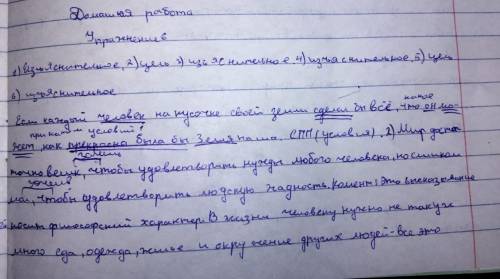 Домашняя работа
Упражнение 6
1) Изъяснительное, 2) цель 3) изъяснительное, 4) изъяснительное, 5) цель
6) изъяснительное
Если каждый человек на кусочке своей земли сделал бы всё, что он мо-
какое
при каком условий?
жет, как прекрасна была бы Земля наша СПП (условия), 2) Мир доста-
зачем
точно велик, чтобы удовлетворить нужды любого человека, но слишком
зачем
мал, чтобы удовлетворить людскую жадность. Комент: Это высказывание
носит философский характер. В жизни человеку нужно не так уж
много еда, одежда, жилье и окружение других людей - все это